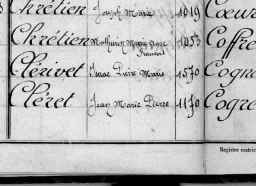 Chrétien Joseph Marie 1019 Cœur
Chrétien Mathurin Marie 1053 Coffre
Clérivet Isaac Pierre Marie 1570 Cogna
Cléret Jean Marie Pierre 1170 Cogre
Registre matric